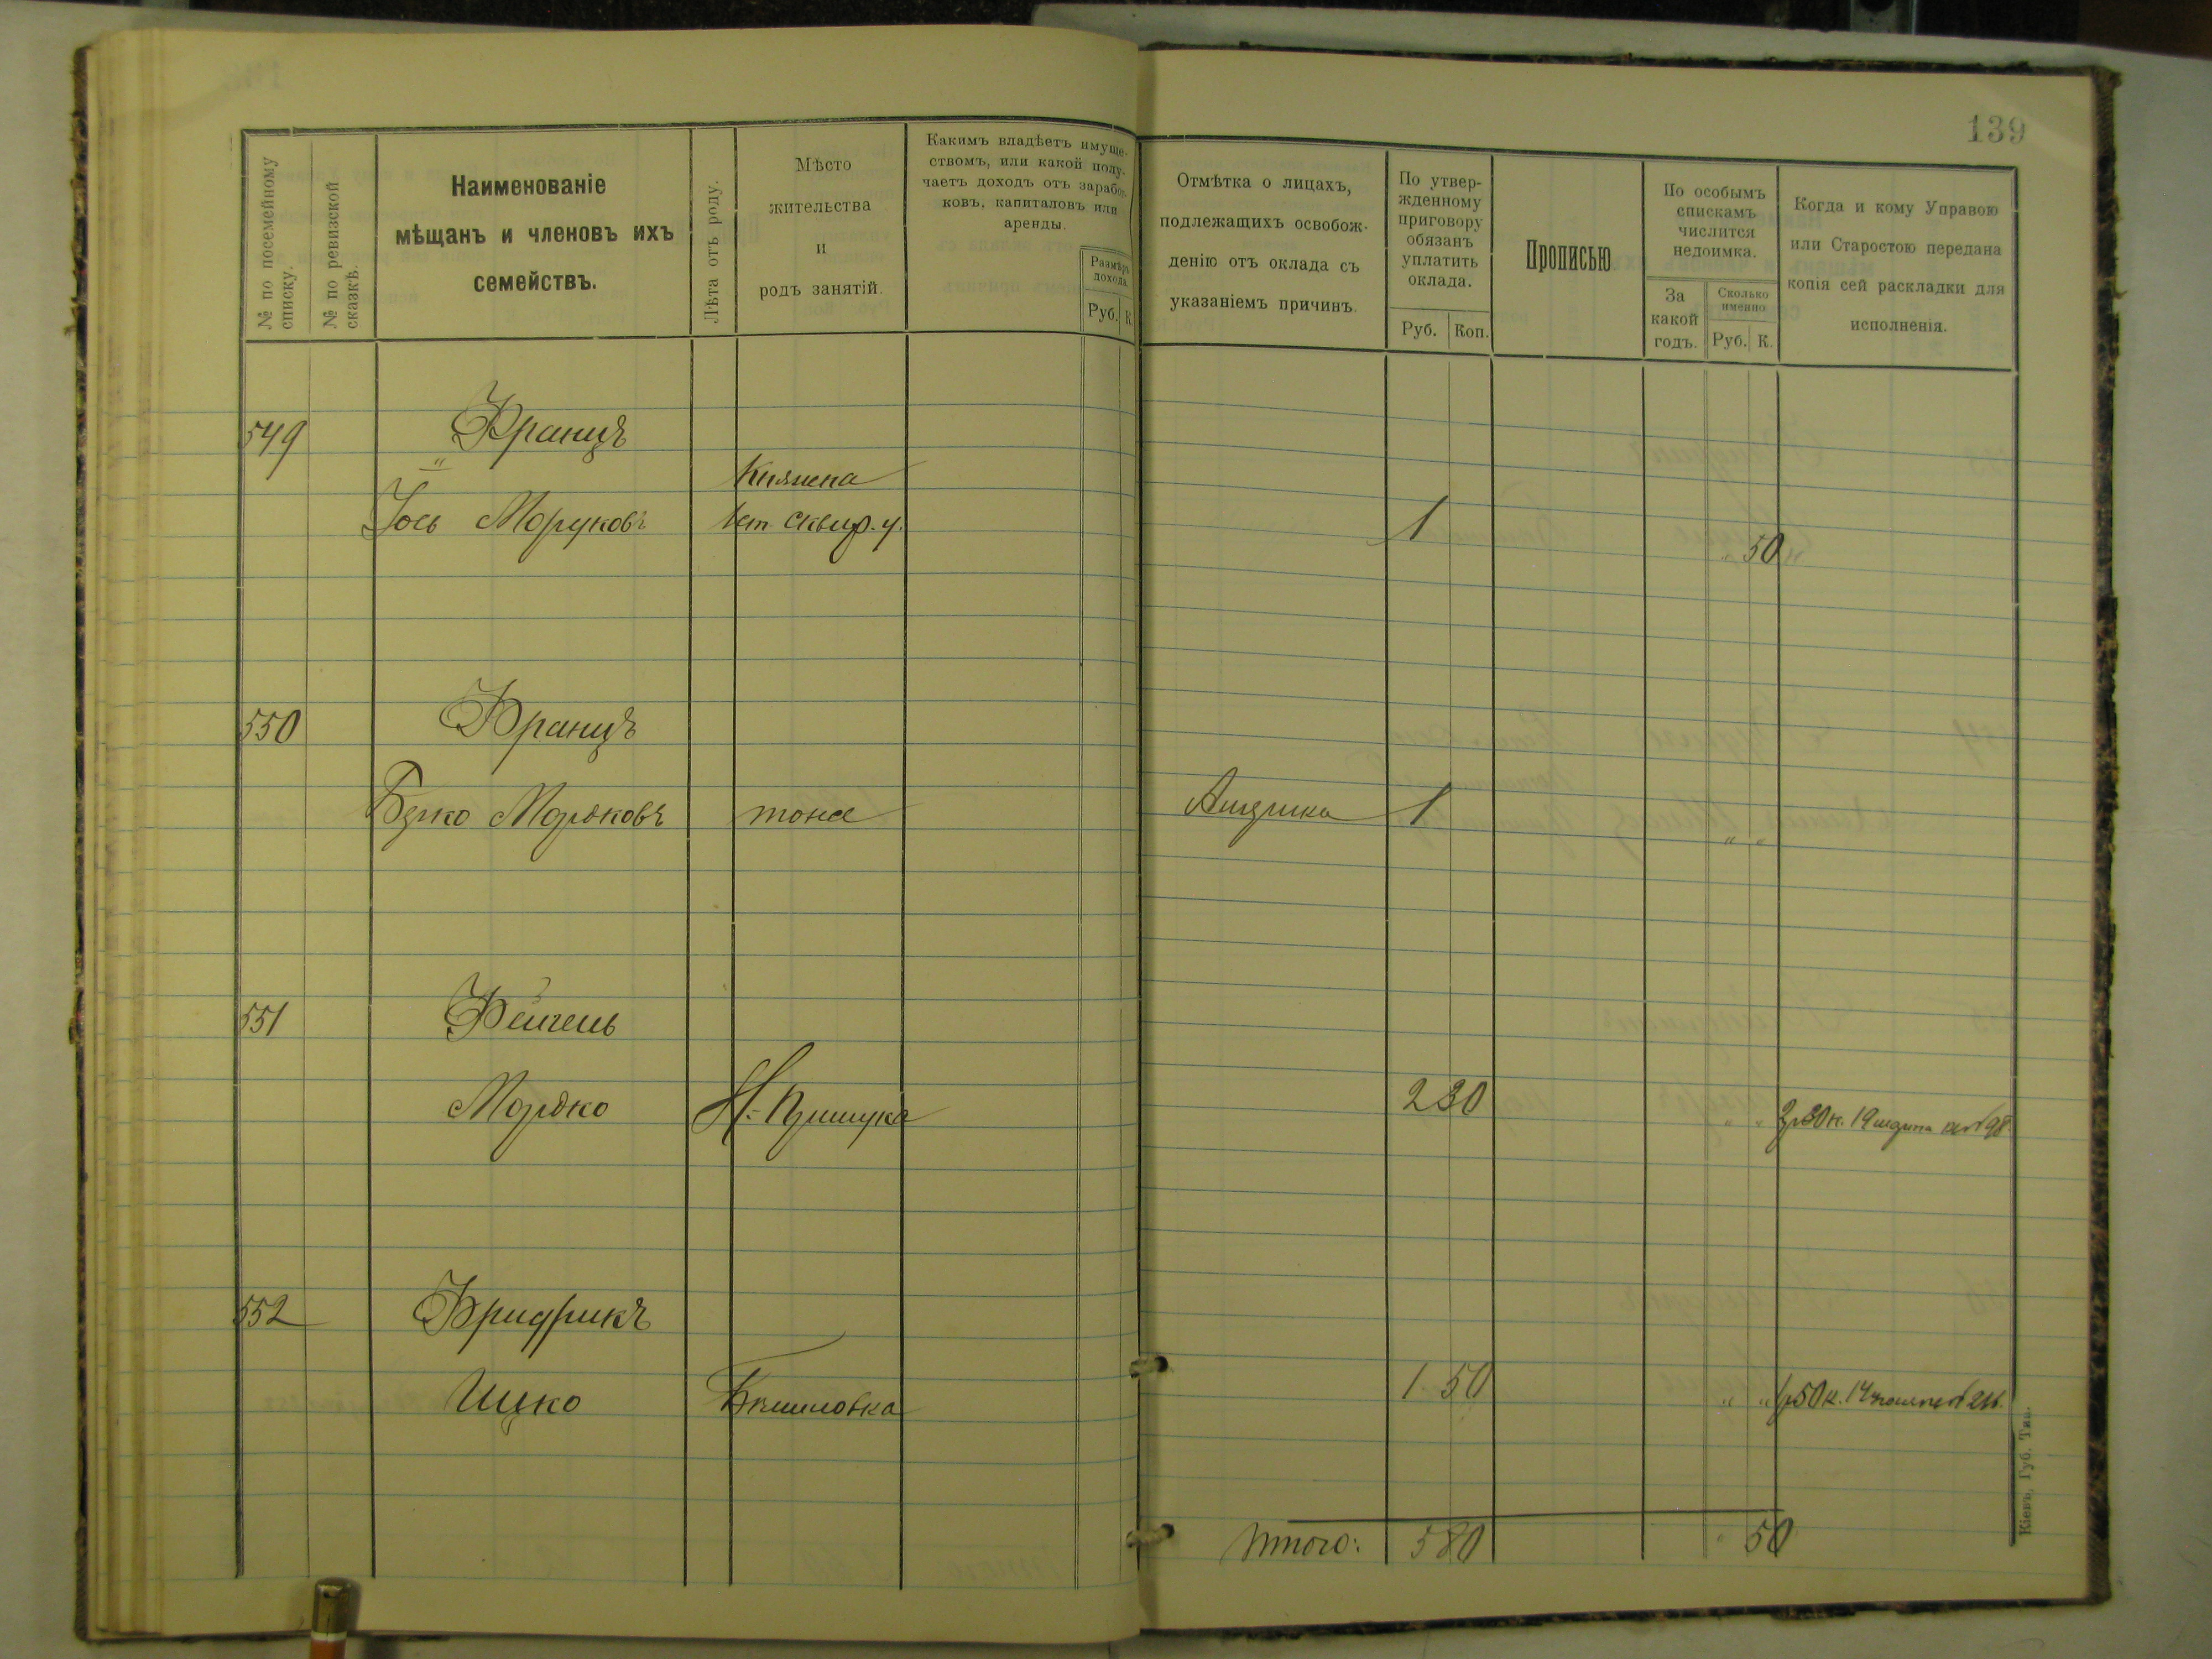 139
№ по посемейному списку.
№ по ревизской сказкѣ.
Наименованіе
мѣщанъ и членовъ ихъ
семействъ.
Лѣта отъ роду.
Мѣсто
жительства
и
родъ занятій.
Какимъ владѣетъ имуще-
ствомъ, или какой полу-
чаетъ доходъ отъ заработ-
ковъ, капиталовъ или
аренды.
Размѣръ
дохода.
Руб. К.
Отмѣтка о лицахъ,
подлежащихъ освобож-
денію отъ оклада съ
указаніемъ причинъ.
По утвер-
жденному
приговору
обязанъ
уплатить
оклада.
Руб. Коп.
Прописью
По особымъ
спискамъ
числится
недоимка.
За
какой
годъ.
Сколько
именно
Руб. К.
Когда и кому Управою
или Старостою передана
копія сей раскладки для
исполненія.
549 Францъ
Іось Моруковъ сквир. у. 1 „ 50
550 Францъ
Берко Мордковъ тоже 1 „ „
551 Фейгель
Мордко 2 30 „ „ 2р30к. 19
552 Фридрихъ
Ицко 1 50 „ „ 1р50к. 14
Итого: 5 80 „ 50
Кіевъ, Губ. Тип.